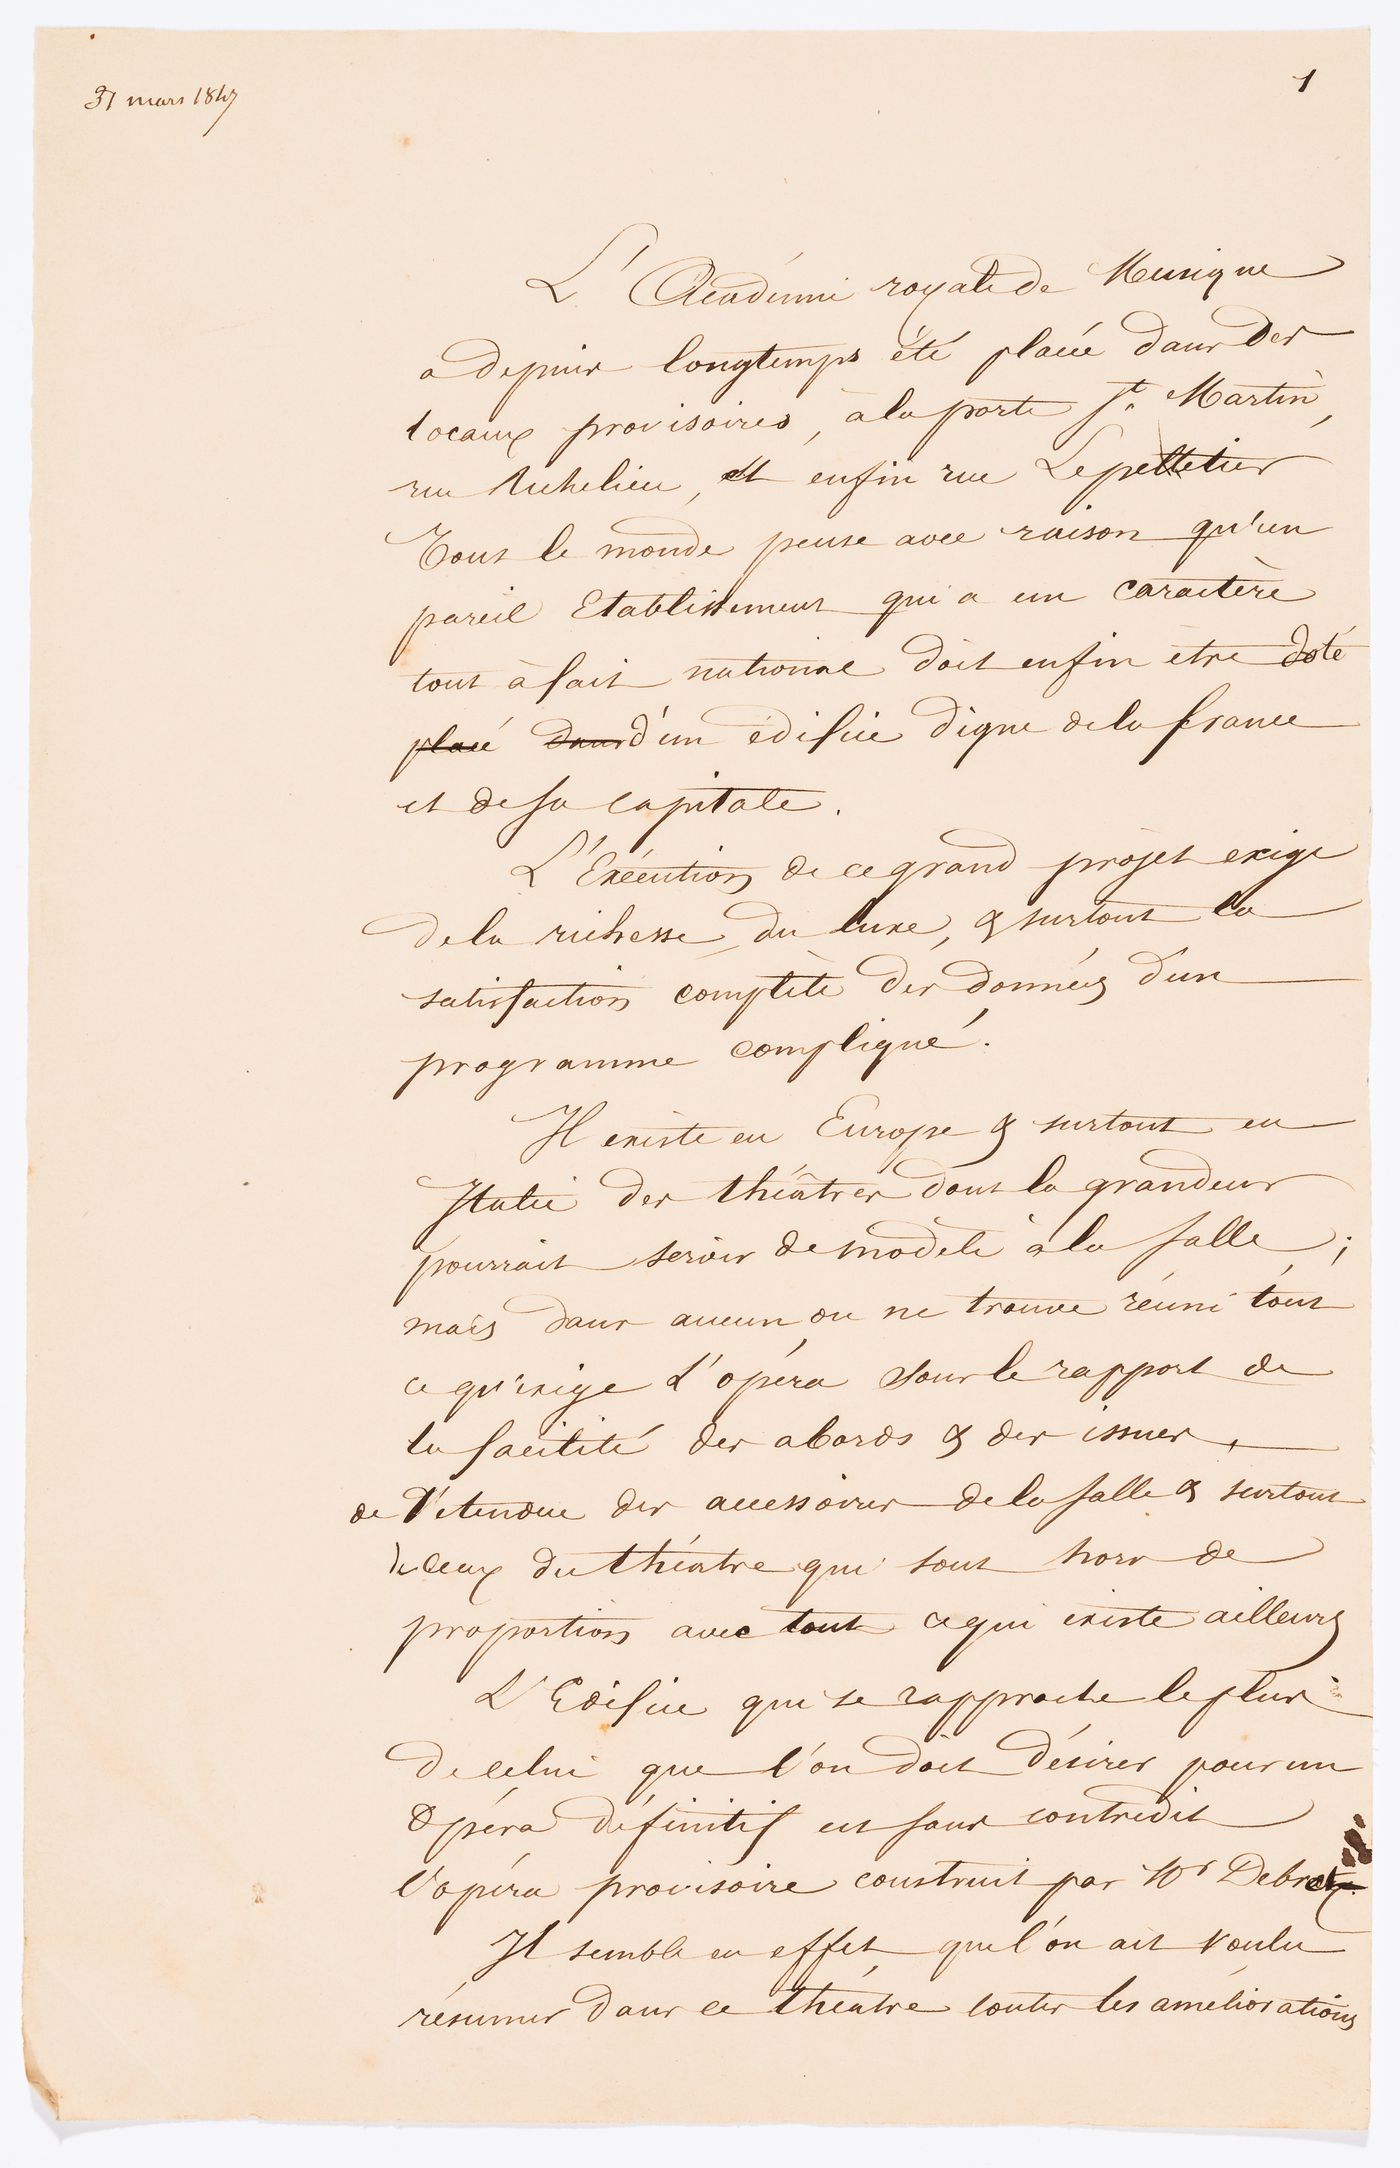 31 mars 1847
1
L'Académie royale de Musique
a depuis longtemps été placée dans des
locaux provisoires, à la porte St. Martin,
rue Richelieu, et enfin rue Lepelletier
Tout le monde pense avec raison qu'un
pareil Etablissement qui a un caractère
tout à fait national doit enfin être doté
placé dans d'un édifice digne de la france
et de sa capitale.
L'Exécution de ce grand projet exige
de la richesse, du luxe, & surtout la
satisfaction complète des données d'un
programme compliqué.
Il existe en Europe & surtout en
Italie des théâtres dont la grandeur
pourrait servir de modèle à la salle ;
mais dans aucun on ne trouve réuni tout
ce qu'exige l'opéra sous le rapport de
la facilité des abords & des issues,
de l'étendue des accessoires de la salle & surtout
de ceux du théâtre qui sont hors de
proportion avec tout ce qui existe ailleurs
L'Edifice qui se rapproche le plus
de celui que l'on doit désirer pour un
Opéra définitif est sans contredit
l'opéra provisoire construit par Mr Debret.
Il semble en effet que l'on ait voulu
résumer dans ce théâtre toutes les améliorations